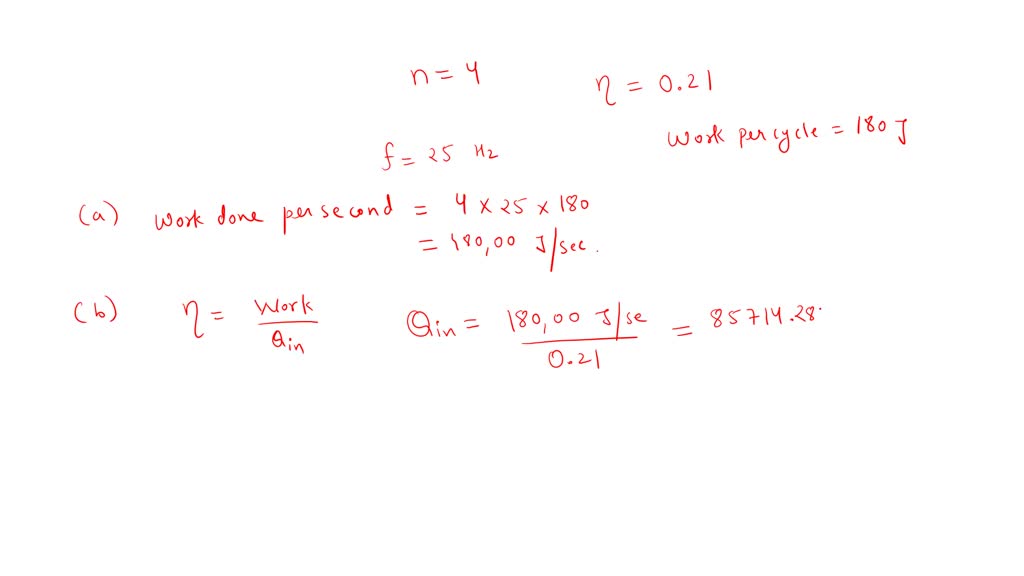 n = 4
η = 0.21
Work per cycle = 180 J
f = 25 Hz
(a) Work done per second = 4 × 25 × 180
= 180,00 J/sec.
(b) η = Work / Qin
Qin = 180,00 J/se / 0.21 = 85714.28.